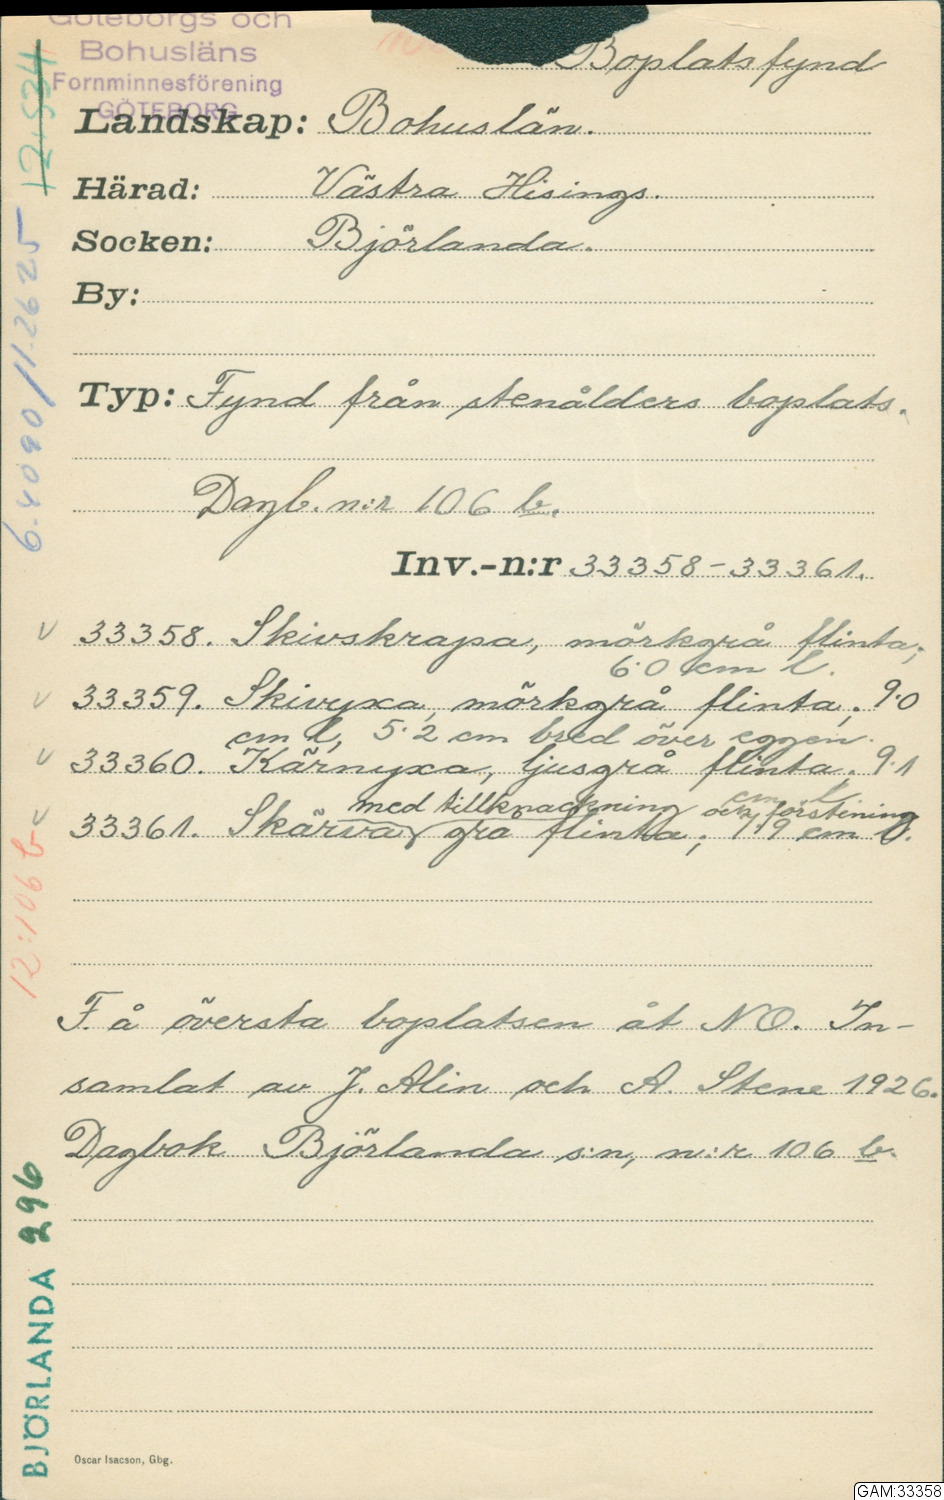 Göteborgs och
Bohusläns
Fornminnesförening
GÖTEBORG
Boplatsfynd
Landskap: Bohuslän.
Härad: Västra Hisings.
Socken: Björlanda.
By:
Typ: Fynd från stenålders boplats.
Dagb. n:r 106 b.
Inv.-n:r 33358-33361.
v 33358. Skivskrapa, mörkgrå flinta;
6.0 cm l.
v 33359. Skivyxa, mörkgrå flinta; 9.0
cm l, 5.2 cm bred över eggen.
v 33360. Kärnyxa, ljusgrå flinta; 9.1
cm l.
med tillknackning och
v 33361. Skärva, grå flinta; 7.9 cm l.
F. å översta boplatsen åt NO. In-
samlat av J. Alin och A. Stene 1926.
Dagbok Björlanda s:n, n:r 106 b.
Oscar Isacson, Gbg.
6.4090/11.2625
12:106 b
BJÖRLANDA 296
GAM:33358